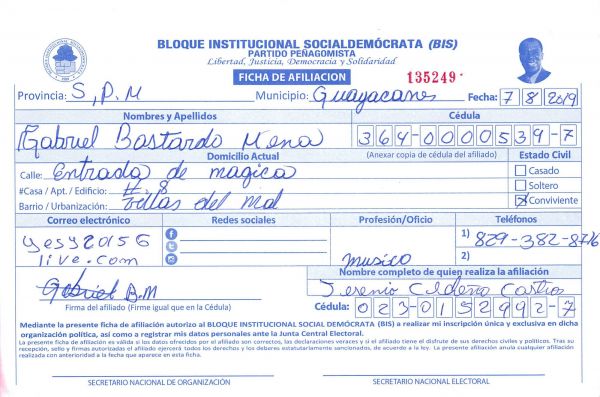 BLOQUE INSTITUCIONAL SOCIALDEMÓCRATA (BIS)
PARTIDO PEÑAGOMISTA
Libertad, Justicia, Democracia y Solidaridad
FICHA DE AFILIACION
135249
Provincia: S, P, M Municipio: Guayacanes Fecha: 7 8 2019
Nombres y Apellidos Cédula
Gabriel Bastardo Mena 364-0000539-7
Domicilio Actual (Anexar copia de cédula del afiliado) Estado Civil
Calle: Entrada de magica Casado
#Casa / Apt. / Edificio: #. 8 Soltero
Barrio / Urbanización: Villas del Mal Conviviente
Correo electrónico Redes sociales Profesión/Oficio Teléfonos
yesy20156 1) 829-382-8716
live.com Musico 2)
Nombre completo de quien realiza la afiliación
Gabriel B.M Cedeno Castro
Firma del afiliado (Firme igual que en la Cédula) Cédula: 023-0152992-7
Mediante la presente ficha de afiliación autorizo al BLOQUE INSTITUCIONAL SOCIAL DEMÓCRATA (BIS) a realizar mi inscripción única y exclusiva en dicha
organización política, así como a registrar mis datos personales ante la Junta Central Electoral.
La presente ficha de afiliación es válida si los datos ofrecidos por el afiliado son correctos, las declaraciones veraces y si el afiliado tiene el disfrute de sus derechos civiles y políticos. Tras su
recepción, sello y firmas autorizadas el afiliado ejercerá todos los derechos y los deberes estatutariamente sancionados, de acuerdo a la ley. La presente afiliación anula cualquier afiliación
realizada con anterioridad a la fecha que aparece en esta ficha.
SECRETARIO NACIONAL DE ORGANIZACIÓN SECRETARIO NACIONAL ELECTORAL